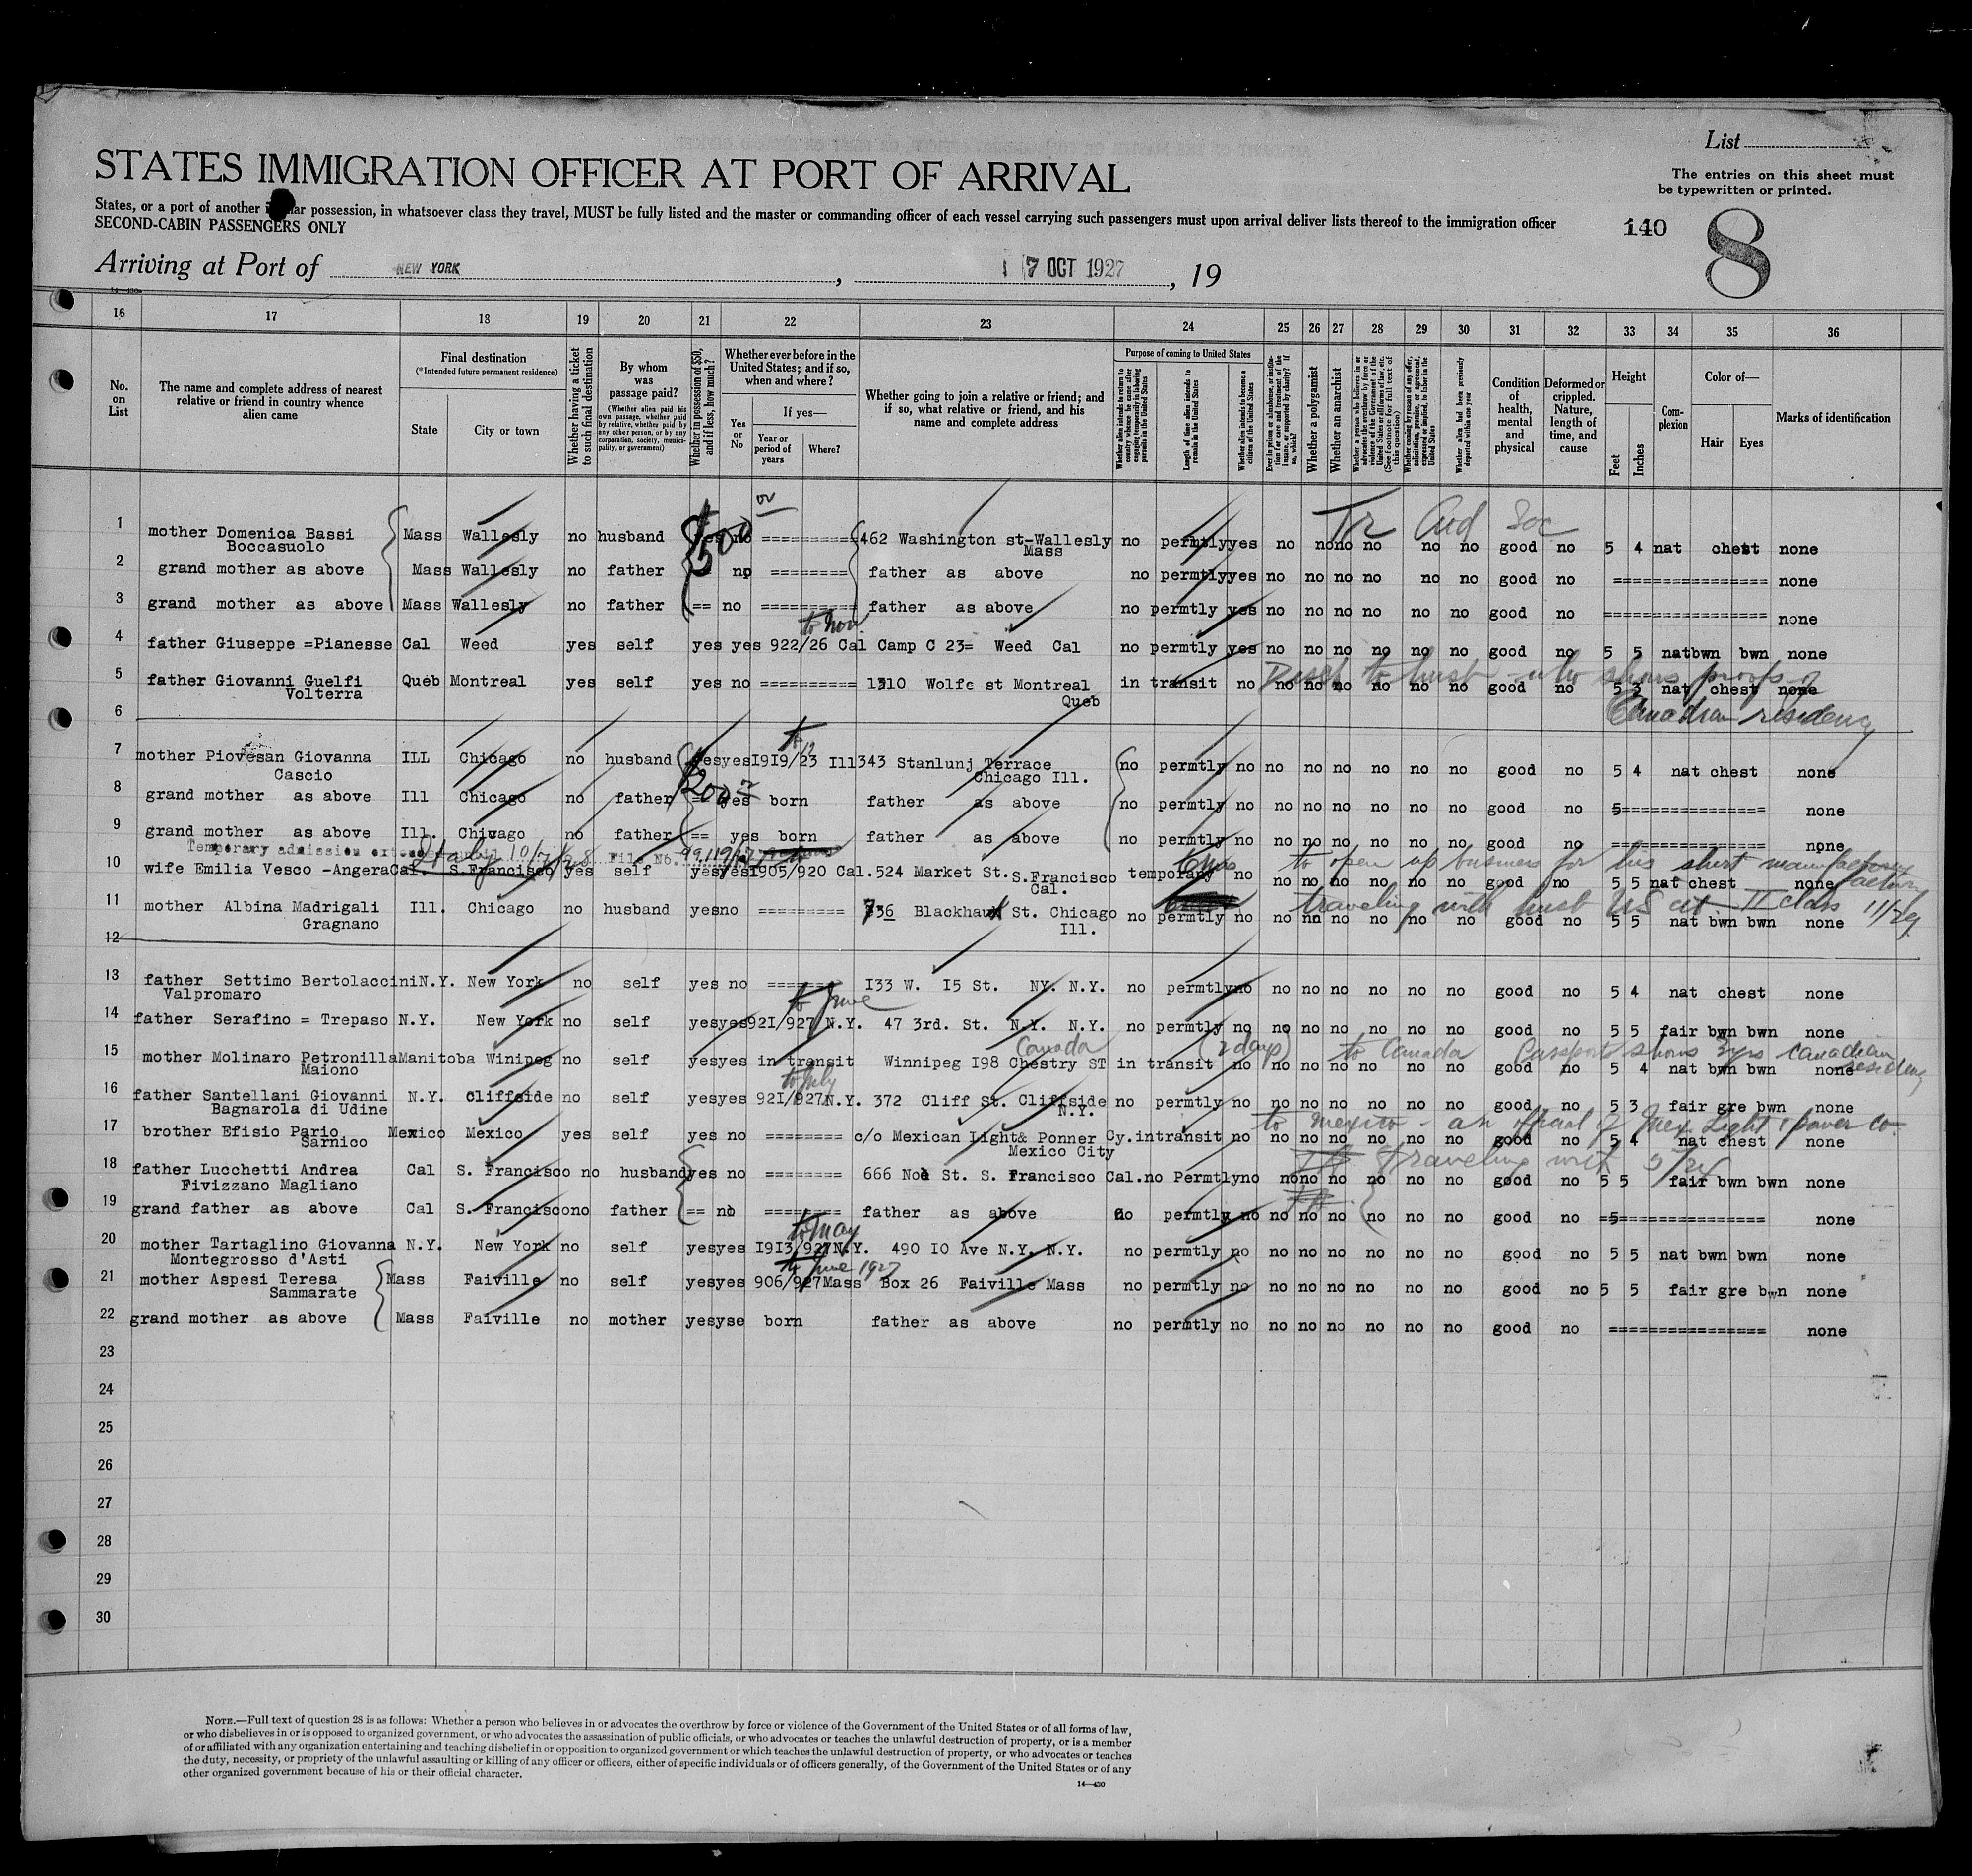 List
STATES IMMIGRATION OFFICER AT PORT OF ARRIVAL
The entries on this sheet must
be typewritten or printed.
States, or a port of another insular possession, in whatsoever class they travel, MUST be fully listed and the master or commanding officer of each vessel carrying such passengers must upon arrival deliver lists thereof to the immigration officer
SECOND-CABIN PASSENGERS ONLY
140 8
Arriving at Port of NEW YORK, 7 OCT 1927, 19
16 17 18 19 20 21 22 23 24 25 26 27 28 29 30 31 32 33 34 35 36
No. on List
The name and complete address of nearest relative or friend in country whence alien came
Final destination
(*Intended future permanent residence)
State
City or town
Whether having a ticket to such final destination
By whom was passage paid?
(Whether alien paid his own passage, whether paid by relative, whether paid by any other person, or by any corporation, society, municipality, or government)
Whether in possession of $50, and if less, how much?
Whether ever before in the United States; and if so, when and where?
Yes or No
If yes—
Year or period of years
Where?
Whether going to join a relative or friend; and if so, what relative or friend, and his name and complete address
Purpose of coming to United States
Whether alien intends to return to country whence he came after engaging temporarily in laboring pursuits in the United States
Length of time alien intends to remain in the United States
Whether alien intends to become a citizen of the United States
Ever in prison or almshouse, or institution for care and treatment of the insane, or supported by charity? If so, which?
Whether a polygamist
Whether an anarchist
Whether a person who believes in or advocates the overthrow by force or violence of the Government of the United States or all forms of law, etc. (See footnote for full text of this question)
Whether coming by reason of any offer, solicitation, promise, or agreement, expressed or implied, to labor in the United States
Whether alien had been previously deported within one year
Condition of health, mental and physical
Deformed or crippled. Nature, length of time, and cause
Height
Feet
Inches
Complexion
Color of—
Hair
Eyes
Marks of identification
$500 Tr Aid Soc
1 mother Domenica Bassi Mass Wallesly no husband yes no ========== 462 Washington st-Wallesly no permtly yes no no no no no no good no 5 4 nat chest none
Boccasuolo Mass
2 grand mother as above Mass Wallesly no father no ======== father as above no permtly yes no no no no no no good no ================ none
3 grand mother as above Mass Wallesly no father == no ========== father as above no permtly yes no no no no no no good no ================ none
to Nov
4 father Giuseppe =Pianesse Cal Weed yes self yes yes 922/26 Cal Camp C 23= Weed Cal no permtly yes no no no no no no good no 5 5 nat bwn bwn none
5 father Giovanni Guelfi Queb Montreal yes self yes no ========== 1310 Wolfe st Montreal in transit no no no no no no no good no 5 3 nat chest none
Volterra Queb
to husb who shows proofs of
Canadian residency
6
7 mother Piovesan Giovanna ILL Chicago no husband yes yes I9I9/23 Ill 343 Stanlunj Terrace no permtly no no no no no no no good no 5 4 nat chest none
Cascio Chicago Ill.
$200
8 grand mother as above Ill Chicago no father == yes born father as above no permtly no no no no no no no good no 5=============== none
9 grand mother as above Ill. Chicago no father == yes born father as above no permtly no no no no no no no good no ================ none
Temporary admission extended until 10/7/28 File No. 99,119/
10 wife Emilia Vesco -Angera Cal. S.Francisco yes self yes yes 1905/920 Cal. 524 Market St. S.Francisco temporary no no no no no no no good no 5 5 nat chest none
Cal.
6 mos to open up business for his shirt
11 mother Albina Madrigali Ill. Chicago no husband yes no ========= 736 Blackhawk St. Chicago no permtly no no no no no no no good no 5 5 nat bwn bwn none
Gragnano Ill.
traveling with husb US cit. II class 11/29
12
13 father Settimo Bertolaccini N.Y. New York no self yes no ======= I33 W. I5 St. NY. N.Y. no permtly no no no no no no no good no 5 4 nat chest none
Valpromaro
to June
14 father Serafino = Trepaso N.Y. New York no self yes yes 92I/927 N.Y. 47 3rd. St. N.Y. N.Y. no permtly no no no no no no no good no 5 5 fair bwn bwn none
Canada (2 days) to Canada Passport shows 3 yrs Canadian residency
15 mother Molinaro Petronilla Manitoba Winipeg no self yes yes in transit Winnipeg I98 Chestry ST in transit no no no no no no no good no 5 4 nat bwn bwn none
Maiono
to July
16 father Santellani Giovanni N.Y. Cliffside no self yes yes 92I/927 N.Y. 372 Cliff St. Cliffside no permtly no no no no no no no good no 5 3 fair gre bwn none
Bagnarola di Udine N.Y.
to Mexico - an official of Mex. Light & Power Co.
17 brother Efisio Pario Mexico Mexico yes self yes no ======== c/o Mexican Light& Ponner Cy. intransit no no no no no no no good no 5 4 nat chest none
Sarnico Mexico City
traveling with
18 father Lucchetti Andrea Cal S. Francisco no husband yes no ======== 666 Noe St. S. Francisco Cal. no Permtly no no no no no no no good no 5 5 fair bwn bwn none
Fivizzano Magliano
19 grand father as above Cal S. Francisco no father == no ======== father as above no permtly no no no no no no no good no =5=============== none
to May
20 mother Tartaglino Giovanna N.Y. New York no self yes yes I9I3/927 N.Y. 490 IO Ave N.Y. N.Y. no permtly no no no no no no no good no 5 5 nat bwn bwn none
Montegrosso d'Asti
to June 1927
21 mother Aspesi Teresa Mass Faiville no self yes yes 906/927 Mass Box 26 Faiville Mass no permtly no no no no no no no good no 5 5 fair gre bwn none
Sammarate
22 grand mother as above Mass Faiville no mother yes yse born father as above no permtly no no no no no no no good no ================ none
23
24
25
26
27
28
29
30
NOTE.—Full text of question 28 is as follows: Whether a person who believes in or advocates the overthrow by force or violence of the Government of the United States or of all forms of law,
or who disbelieves in or is opposed to organized government, or who advocates the assassination of public officials, or who advocates or teaches the unlawful destruction of property, or is a member
of or affiliated with any organization entertaining and teaching disbelief in or opposition to organized government or which teaches the unlawful destruction of property, or who advocates or teaches
the duty, necessity, or propriety of the unlawful assaulting or killing of any officer or officers, either of specific individuals or of officers generally, of the Government of the United States or of any
other organized government because of his or their official character.
14—430